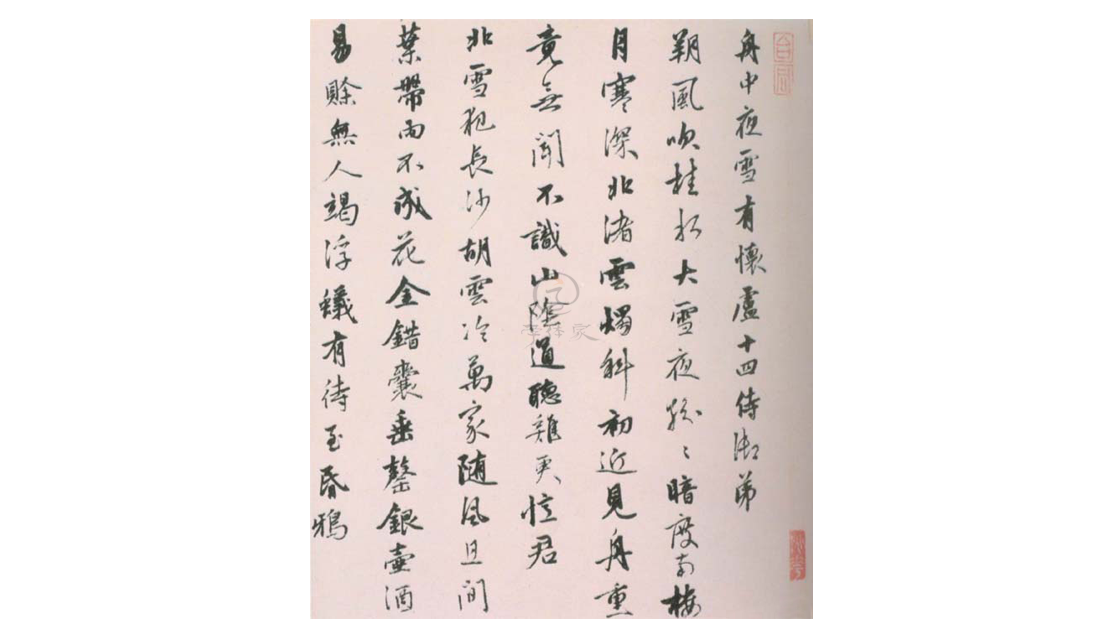 舟中夜雪有懷盧十四侍御弟
朔風吹桂水大雪夜紛〻暗度南樓
月寒深北渚雲燭斜初近見舟重
竟無聞不識山陰道聽雞更憶君
北雪犯長沙胡雲冷萬家隨風且間
葉帶雨不成花金錯囊垂罄銀壺酒
易賒無人竭浮蟻有待至昏鴉